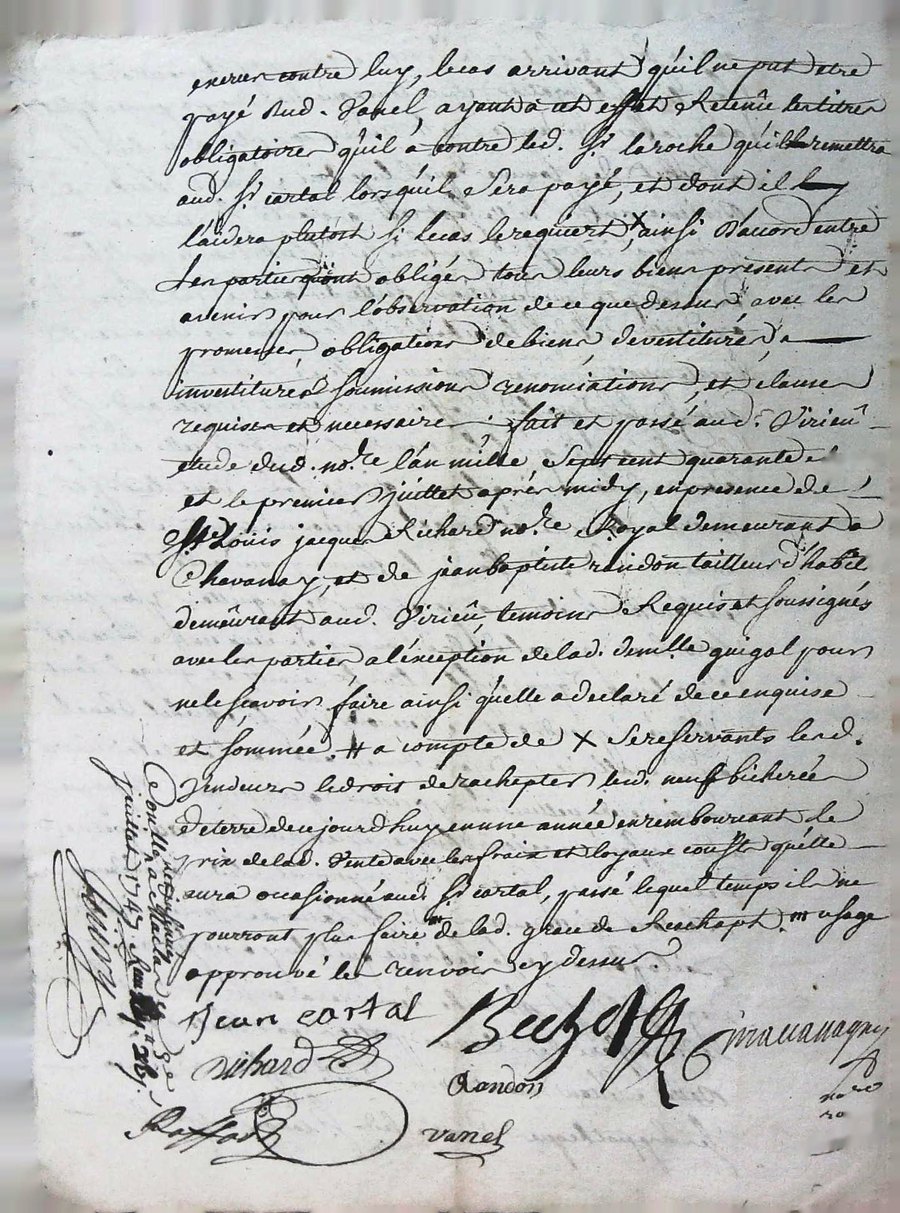 exercer contre luy, le cas arrivant qu'il ne put etre
payé dud. Vanel, ayant a cet effet Retenû les titres
obligatoires qu'il a contre led. Sr. laroche qu'il remettra
aud. Sr. cartal lorsqu'il sera payé, et dont il
l'aidera plutost si le cas le requiert X ainsi d'accord entre
les parties qu'ont obligés tous leurs biens presents et
avenir pour l'observation de ce que dessus avec les
promesses obligations de biens devestitures
investitures soumissions renonciations, et clauses
requises et necessaires. fait et passé aud. Virieû
etude dud. nore. l'an mille sept cent quarante
et le premier juillet après midy, en presence de
Me. Louis jacques Richard nore. Royal demeurant a
Chavanay, et de jean baptiste randon tailleur d'habit
demeurant aud. Virieû, temoins Requis et soussignés
avec les parties a l'exception de lad. demlle. guigal pour
ne le scavoir faire ainsi qu'elle a declaré de ce enquise
et sommée. # a compte de X se reservants lesd.
Vendeurs le droit de rachepter lesd. neuf bicherées
de terre de ce jourd'huy en une année en remboursant le
prix de lad. Vente avec les fraix et loyaux cousts qu'elle
aura occasionné aud. Sr. cartal, passé lequel temps ils ne
pourront plus faire de lad. grace de Rachapt. m usage
approuvé les renvois cy dessus
Jean cartal
Richard
Randon
Vanel
juillet 1747